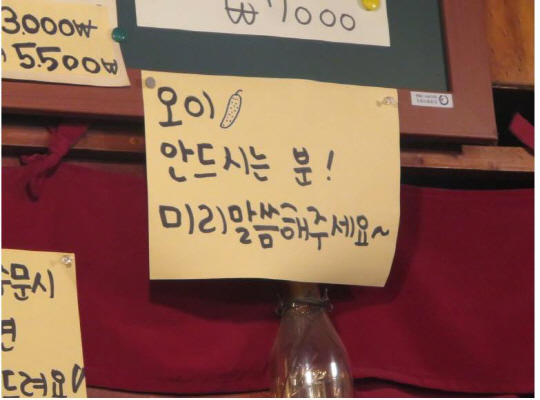 ₩7000
3.000₩
5.500₩
오이
안드시는 분!
미리말씀해주세요~
문시
면
드려요